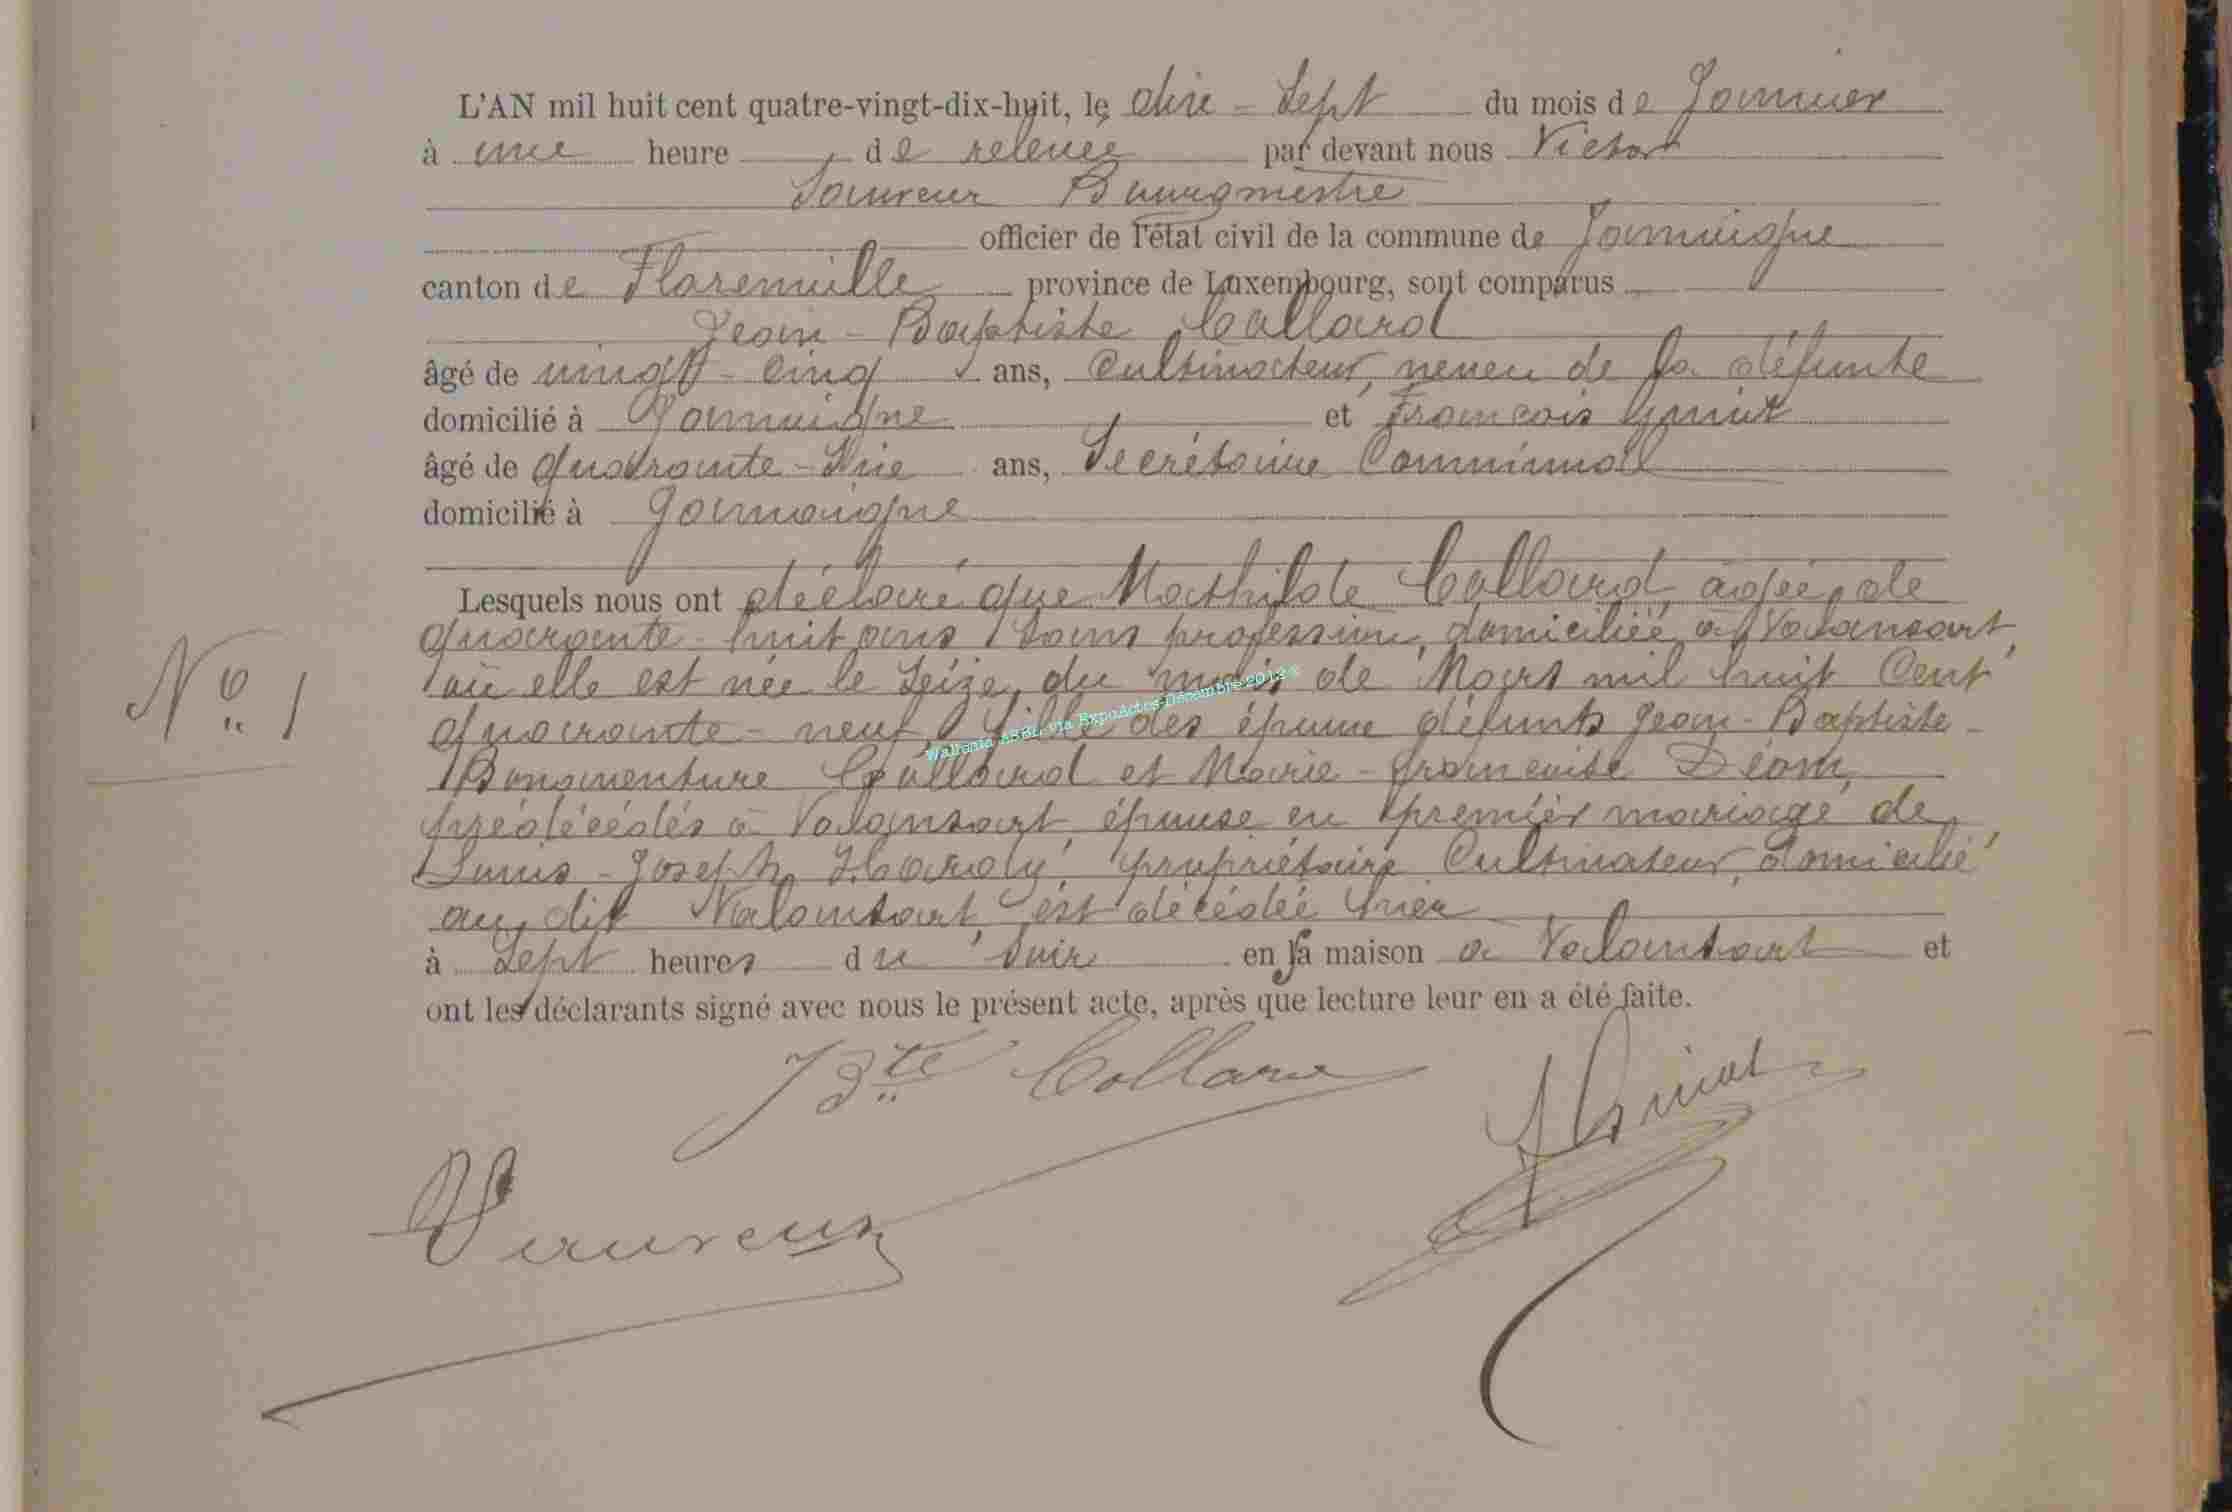 L'AN mil huit cent quatre-vingt-dix-huit, le dix-sept du mois de Janvier
à une heure de relevée par devant nous Victor
Sauveur Bourgmestre
officier de l'état civil de la commune de Jamoigne
canton de Florenville province de Luxembourg, sont comparus
Jean-Baptiste Collard
âgé de vingt-cinq ans, Cultivateur, neveu de la défunte
domicilié à Jamoigne et François
âgé de quarante-six ans, Secrétaire Communal
domicilié à Jamoigne
Lesquels nous ont déclaré que Mathilde Collard, âgée de
quarante-huit ans, sans profession, domiciliée à Valansart,
où elle est née le seize du mois de Mars mil huit Cent
N° 1
quarante-neuf, fille des époux défunts Jean-Baptiste-
Walfonia ASBL via ExpoActes-Décembre 2012©
Bonaventure Collard et Marie-Françoise Déom,
prédécédés à Valansart, épouse en premier mariage de
Louis-Joseph Hardy, propriétaire Cultivateur, domicilié
au dit Valansart, est décédée hier
à sept heures du soir en sa maison à Valansart et
ont les déclarants signé avec nous le présent acte, après que lecture leur en a été faite.
JBte Collard
VSauveur